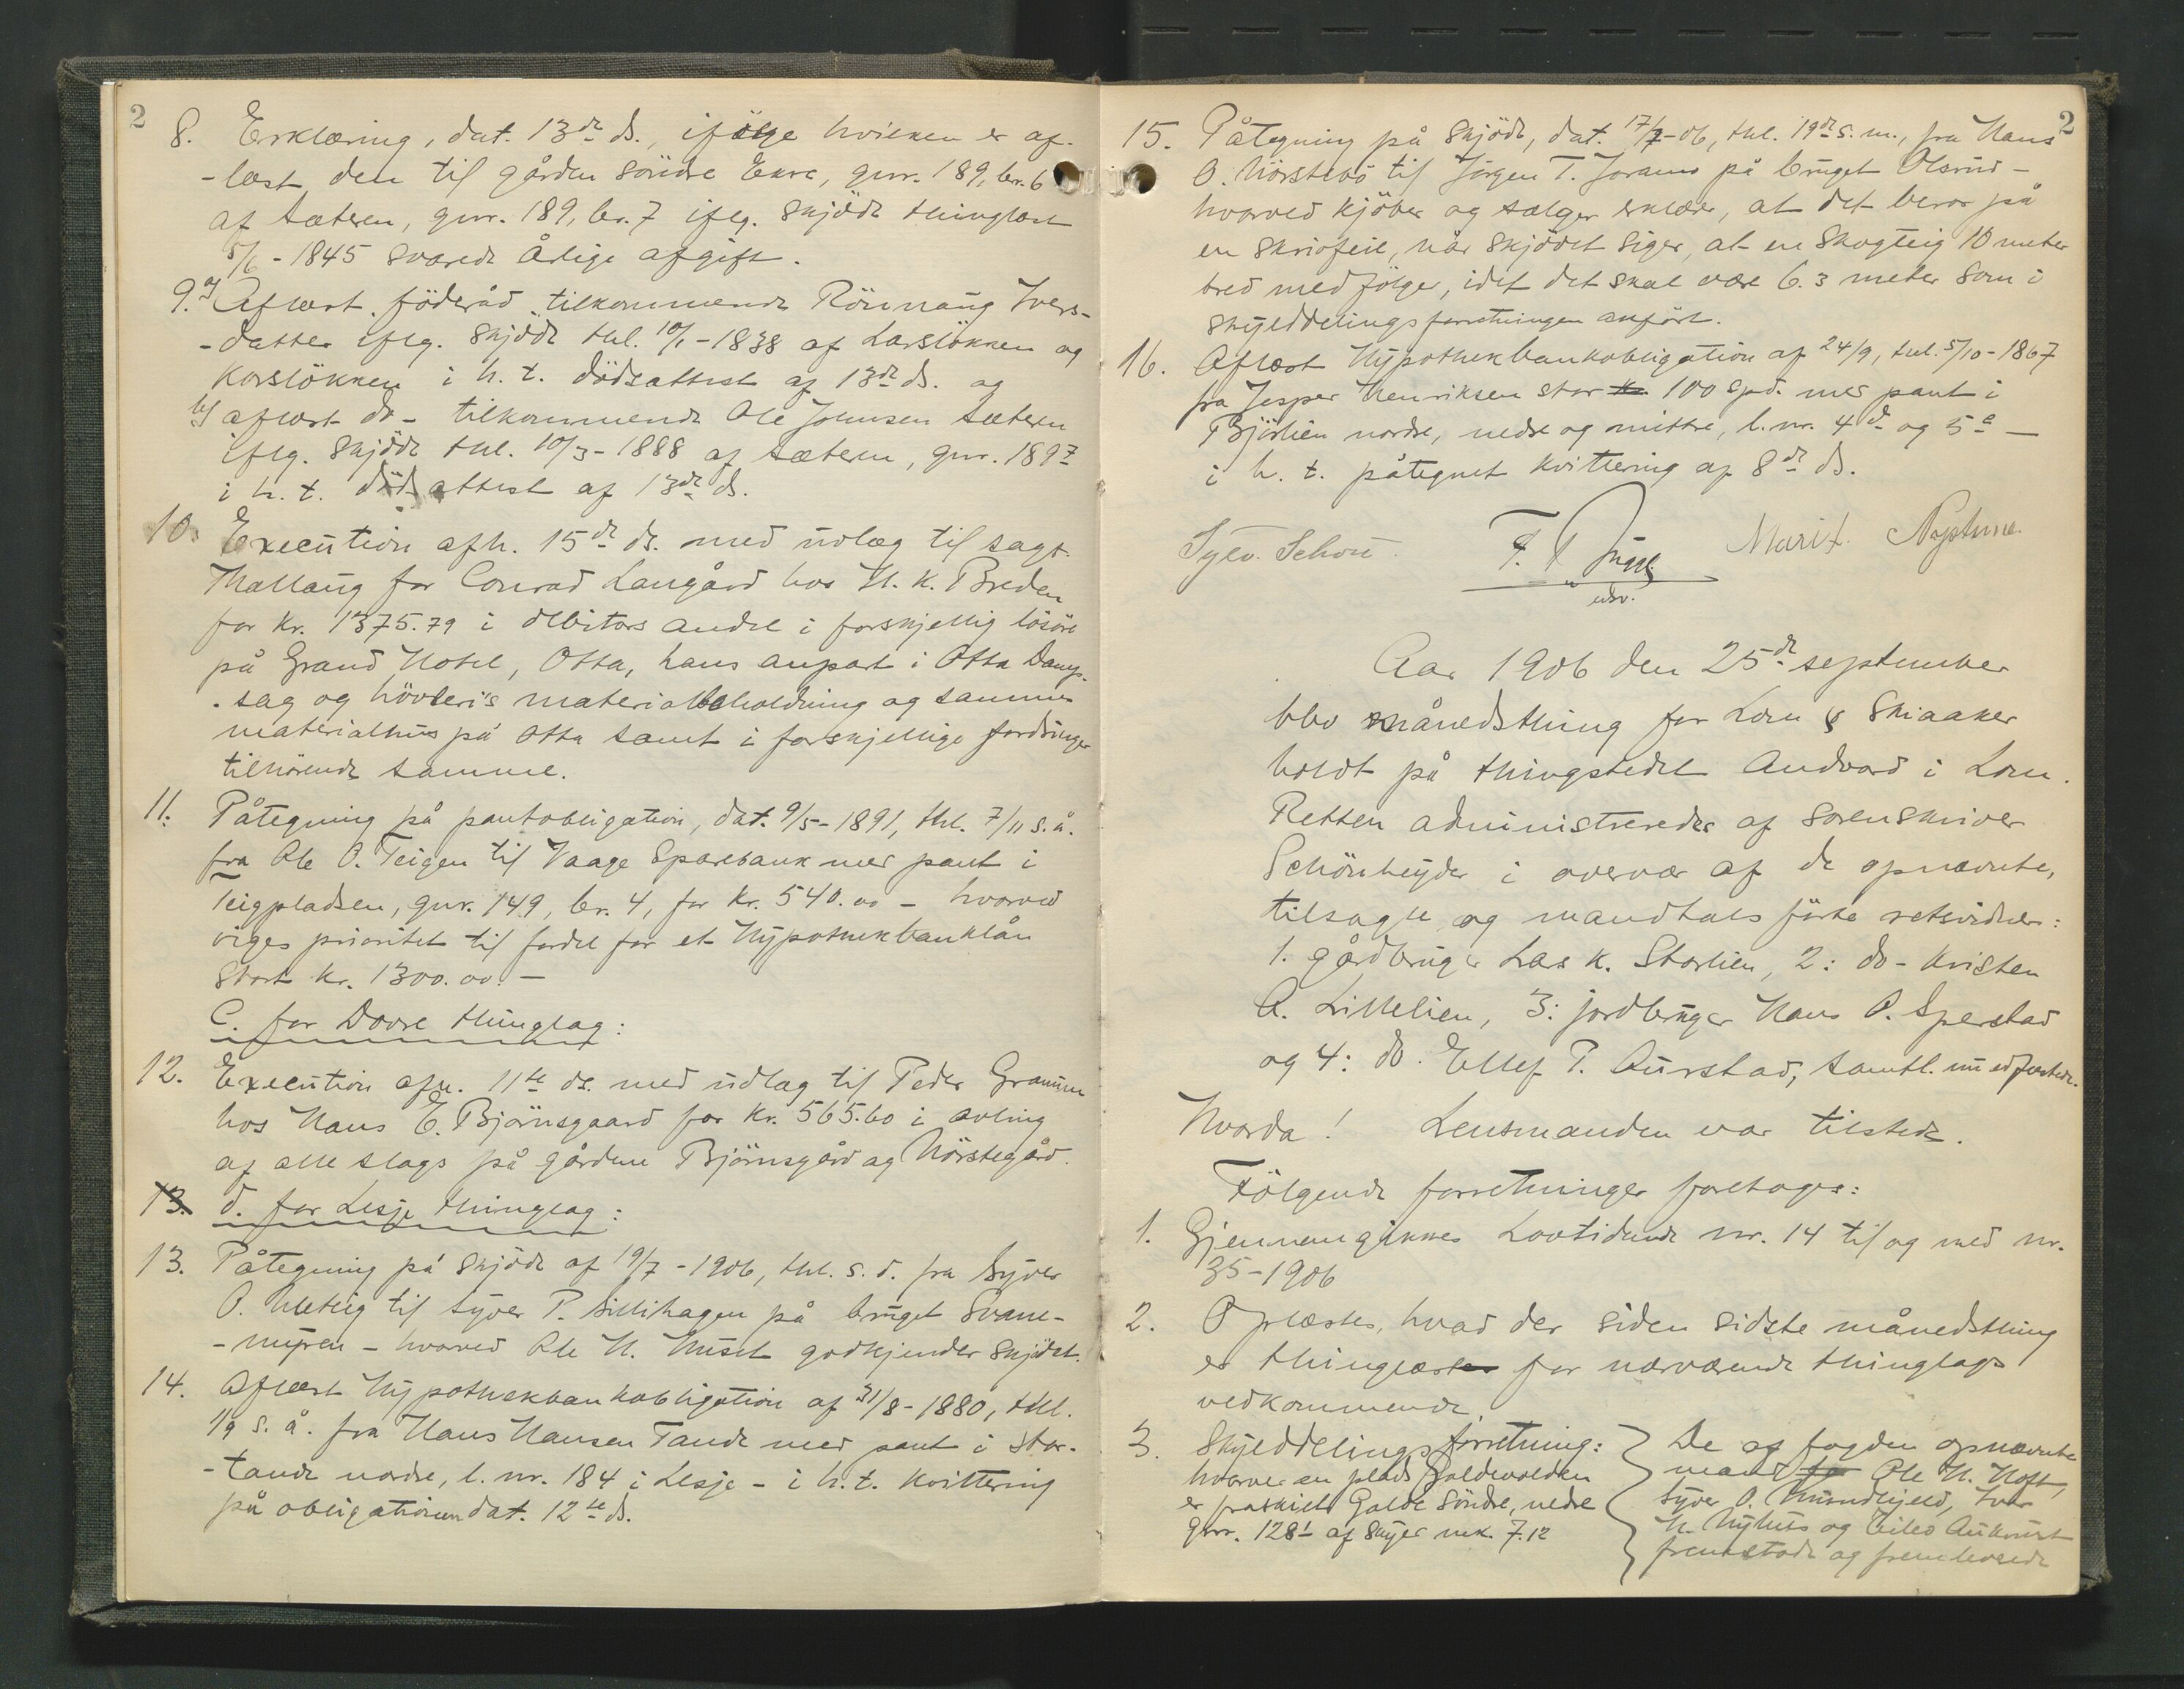 2
8. Erklæring, dat. 13de ds., ifølge hvilken er af-
-læst den til gården söndre Ekre, gnr. 189, br. 6
af Sæteren, gnr. 189, br. 7 iflg. skjöde thinglæst
5/6 - 1845 svarede årlige afgift.
9. a/ Aflæst föderåd tilkommende Rönnaug Ivers-
-datter iflg. skjöde thl. 10/1 - 1838 af Larslökken og
Korslökken i h. t. dödsattest af 13de ds. og
b/ aflæst do - tilkommende Ole Johnsen Sæteren
iflg. skjöde thl. 10/3 - 1888 af Sæteren, gnr. 189 7
i h. t. dödsattest af 13de ds.
10. Execution afh. 15de ds. med udlæg til sagf.
Mallaug for Conrad Langård hos H. K. Breden
for kr. 1375.79 i debitors andel i forskjellig lösöre
på Grand Hotel, Otta, hans anpart i Otta Damp-
-sag og hövleri's materialbeholdning og samme
materialhus på Otta samt i forskjellige fordringer
tilhörende samme.
11. Påtegning på pantobligation, dat. 9/5 - 1891, thl. 7/11 s. å.
fra Ole O. Teigen til Vaage Sparebank med pant i
Teigpladsen, gnr. 149, br. 4, for kr. 540.00 - hvorved
viges prioritet til fordel for et Hypothekbanklån
stort kr. 1300.00. -
C. for Dovre thinglag:
12. Execution afh. 11te ds. med udlæg til Peder Gramm
hos Hans E. Björnsgaard for kr. 565.60 i avling
af alle slags på gårdene Björnsgård og Nörstegård.
13. d. for Lesje thinglag:
13. Påtegning på skjöde af 19/7 - 1906, thl. s. d. fra Syver
O. til Syver P. Sillihagen på bruget Svane-
-myren - hvorved Ole H. godkjender skjödet.
14. Aflæst Hypothekbankobligation af 31/8 - 1880, thl.
1/9 s. å. fra Hans Hansen Tande med pant i Stor-
-tande nordre, l. nr. 184 i Lesje - i h. t. kvittering
på obligationen dat. 12te ds.
2
15. Påtegning på skjöde, dat. 17/7 - 06, thl. 19de s. m., fra Hans
O. Nörstebö til Jörgen T. Joramo på bruget Olsrud -
hvorved kjöber og sælger erklær, at det beror på
en skrivfeil, når skjödet siger, at en skogteig 10 meter
bred medfölger, idet det skal være 6.3 meter som i
skylddelingsforretningen anfört.
16. Aflæst Hypothekbankobligation af 24/9, thl. 5/10 - 1867
fra Jesper Henriksen stor kr. 100 spd. med pant i
Björlien nordre, nedre og mittre, l. nr. 4 d og 5 a -
i h. t. påtegnet kvittering af 8de ds.
Sylv. Schou. Marit Neptune
Aar 1906 den 25de september
blev månedsthing for Lom & Skiaaker
holdt på thingstedet Andvord i Lom.
Retten administreredes af sorenskriver
Schönheyder i overvær af de opnævnte,
tilsagte og mandtalsförte retsvidner:
1. gårdbruger Lars K. Storlien, 2: do - Kristen
A. Lillelien, 3: jordbruger Hans O. Sperstad
og 4: do. Ellef P. Aurstad, samtl. nu edfæstede.
Hvorda! Lensmanden var tilstede.
Fölgende forretninger foretoges:
1. Gjennemgikkes Lovtidende nr. 14 til og med nr.
35 - 1906
2. Oplæstes, hvad der siden sidste månedsthing
er thinglæst for nærværende thinglags
vedkommende
3. Skylddelingsforretning:
hvorved en plads Galdevolden
er fraskilt Galde söndre, nedre
gnr. 128 1 af skyld mk. 7.12
De af fogden opnævnte
mænd Ole H. Hoft,
Syver O. Iver
N. Nyhus og Eilev Aukrust
fremstod og fremleverede